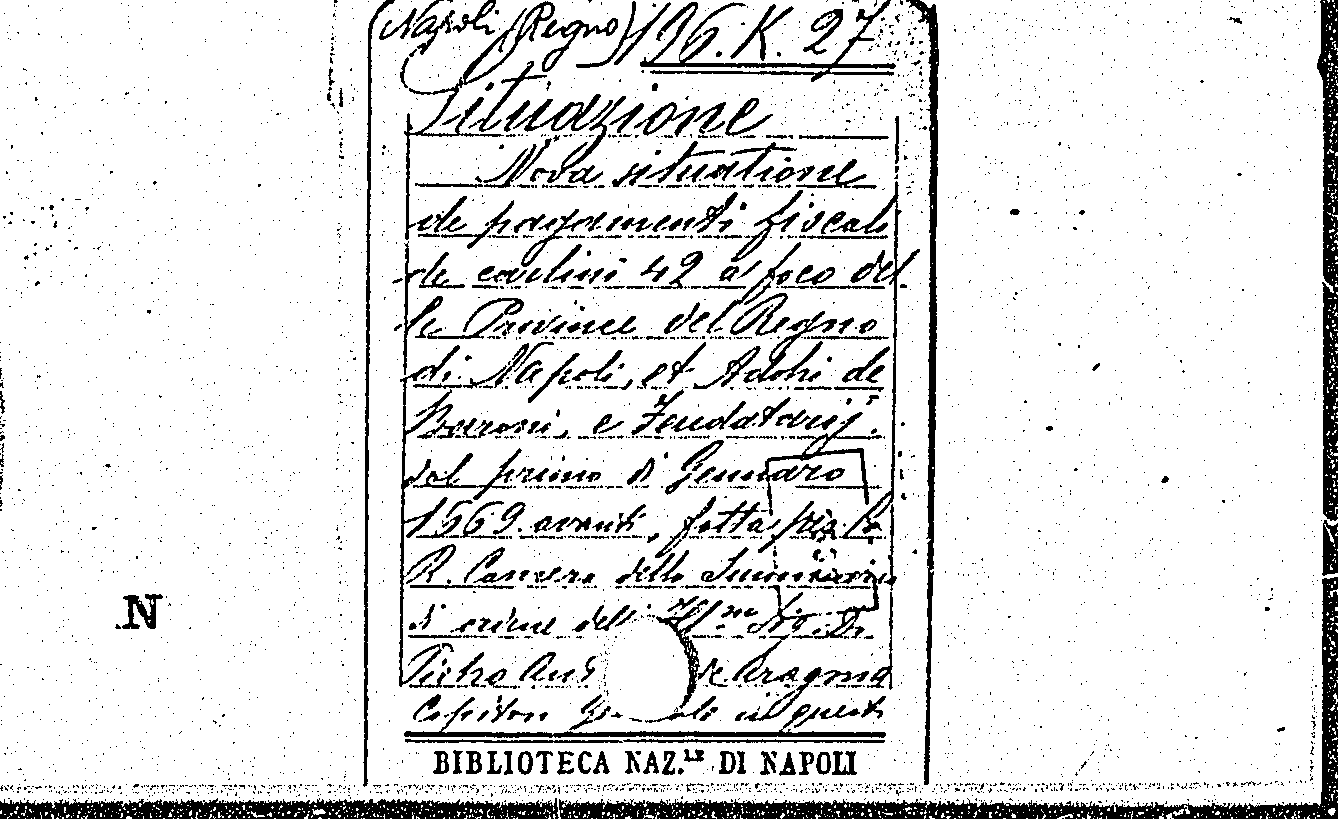 Napoli (Regno) 196. K. 27
Situazione
Nova situatione
de pagamenti fiscali
de carlini 42 a foco del
le Province del Regno
di Napoli, et Adohi de
Baroni, e Feudatarij.
dal primo di Gennaro
1669. avanti, fatta per la
R. Camera della Summaria
di ordine dell' Ill.mo Sig. D.
Pietro Ant de Aragona
Capitan Ge le in questi
N
BIBLIOTECA NAZ.LE DI NAPOLI